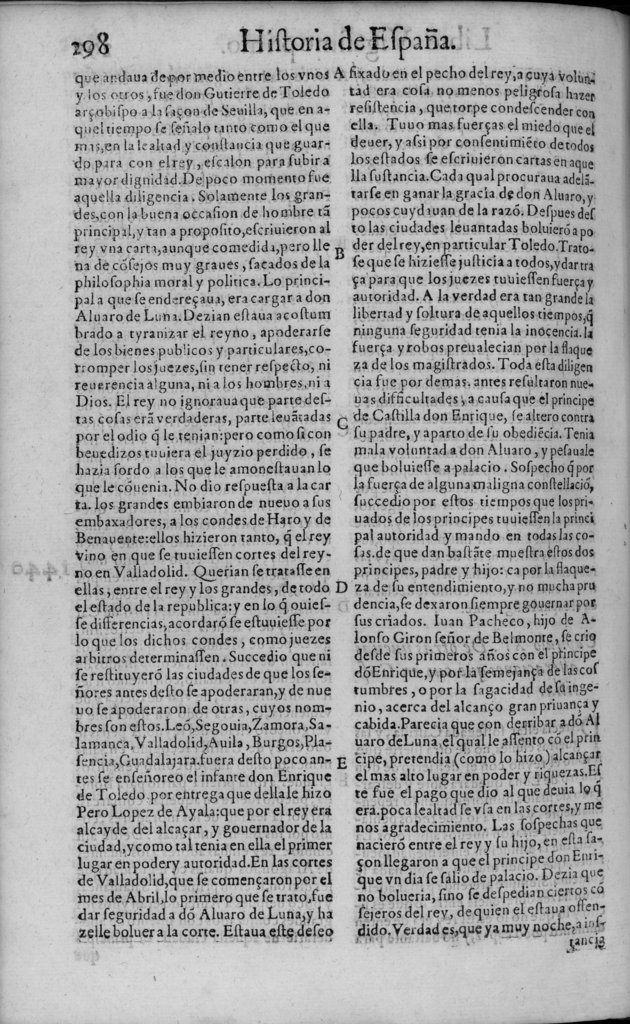 298 Historia de España.
que andaua de por medio entre los vnos
y los otros, fue don Gutierre de Toledo
arçobispo a la saçon de Seuilla, que en a-
quel tiempo se señalo tanto como el que
mas, en la lealtad y constancia que guar-
do para con el rey, escalon para subir a
mayor dignidad. De poco momento fue
aquella diligencia. Solamente los gran-
des, con la buena occasion de hombre tã
principal, y tan a proposito, escriuieron al
rey vna carta, aunque comedida, pero lle
na de cõsejos muy graues, sacados de la
philosophia moral y politica. Lo princi-
pal a que se endereçaua, era cargar a don
Aluaro de Luna. Dezian estaua acostum
brado a tyranizar el reyno, apoderarse
de los bienes publicos y particulares, co-
rromper los juezes, sin tener respecto, ni
reuerencia alguna, ni a los hombres, ni a
Dios. El rey no ignoraua que parte des-
tas cosas erã verdaderas, parte leuãtadas
por el odio q̃ le tenian: pero como si con
beuedizos tuuiera el juyzio perdido, se
hazia sordo a los que le amonestauan lo
que le cõuenia. No dio respuesta a la car
ta. los grandes embiaron de nueuo a sus
embaxadores, a los condes de Haro y de
Benauente: ellos hizieron tanto, q̃ el rey
vino en que se tuuiessen cortes del rey-
no en Valladolid. Querian se tratasse en
ellas, entre el rey y los grandes, de todo
el estado de la republica: y en lo q̃ ouies-
se differencias, acordarõ se estuuiesse por
lo que los dichos condes, como juezes
arbitros determinassen. Succedio que ni
se restituyerõ las ciudades de que los se-
ñores antes desto se apoderaran, y de nue
uo se apoderaron de otras, cuyos nom-
bres son estos. Leõ, Segouia, Zamora, Sa-
lamanca, Valladolid, Auila, Burgos, Pla-
sencia, Guadalajara. fuera desto poco an-
tes se enseñoreo el infante don Enrique
de Toledo, por entrega que della le hizo
Pero Lopez de Ayala: que por el rey era
alcayde del alcaçar, y gouernador de la
ciudad, y como tal tenia en ella el primer
lugar en poder y autoridad. En las cortes
de Valladolid, que se començaron por el
mes de Abril, lo primero que se trato, fue
dar seguridad a dõ Aluaro de Luna, y ha
zelle boluer a la corte. Estaua este deseo
A
B
C
D
E
fixado en el pecho del rey, a cuya volun-
tad era cosa no menos peligrosa hazer
resistencia, que torpe condescender con
ella. Tuuo mas fuerças el miedo que el
deuer, y assi por consentimiẽto de todos
los estados se escriuieron cartas en aque
lla sustancia. Cada qual procuraua adelã-
tarse en ganar la gracia de don Aluaro, y
pocos cuydauan de la razõ. Despues des
to las ciudades leuantadas boluierõ a po
der del rey, en particular Toledo. Trato-
se que se hiziesse justicia a todos, y dar tra
ça para que los juezes tuuiessen fuerça y
autoridad. A la verdad era tan grande la
libertad y soltura de aquellos tiempos, q̃
ninguna seguridad tenia la inocencia. la
fuerça y robos preualecian por la flaque
za de los magistrados. Toda esta diligen
cia fue por demas. antes resultaron nue-
uas difficultades, a causa que el principe
de Castilla don Enrique, se altero contra
su padre, y aparto de su obediẽcia. Tenia
mala voluntad a don Aluaro, y pesauale
que boluiesse a palacio. Sospecho q̃ por
la fuerça de alguna maligna constellaciõ,
succedio por estos tiempos que los pri-
uados de los principes tuuiessen la princi
pal autoridad y mando en todas las co-
sas. de que dan bastãte muestra estos dos
principes, padre y hijo: ca por la flaque-
za de su entendimiento, y no mucha pru
dencia, se dexaron siempre gouernar por
sus criados. Iuan Pacheco, hijo de A-
lonso Giron señor de Belmonte, se crio
desde sus primeros años con el principe
dõ Enrique, y por la semejança de las cos
tumbres, o por la sagacidad de su inge-
nio, acerca del alcanço gran priuança y
cabida. Parecia que con derribar a dõ Al
uaro de Luna, el qual le assento cõ el prin
cipe, pretendia (como lo hizo) alcançar
el mas alto lugar en poder y riquezas. Es
te fue el pago que dio al que deuia lo q̃
era. poca lealtad se vsa en las cortes, y me
nos agradecimiento. Las sospechas que
nacierõ entre el rey y su hijo, en esta sa-
çon llegaron a que el principe don Enri-
que vn dia se salio de palacio. Dezia que
no bolueria, sino se despedian ciertos cõ
sejeros del rey, de quien el estaua offen-
dido. Verdad es, que ya muy noche, a ins-
tancia